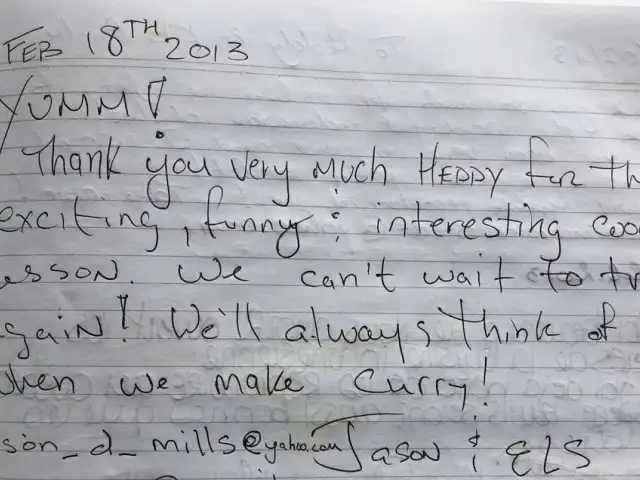 FEB 18TH 2013
YUMM!
Thank you very much HEDDY for th
exciting, funny & interesting coo
esson. We can't wait to tr
gain! We'll always think of
hen we make curry!
son_d_mills@yahoo.com Jason & ELS